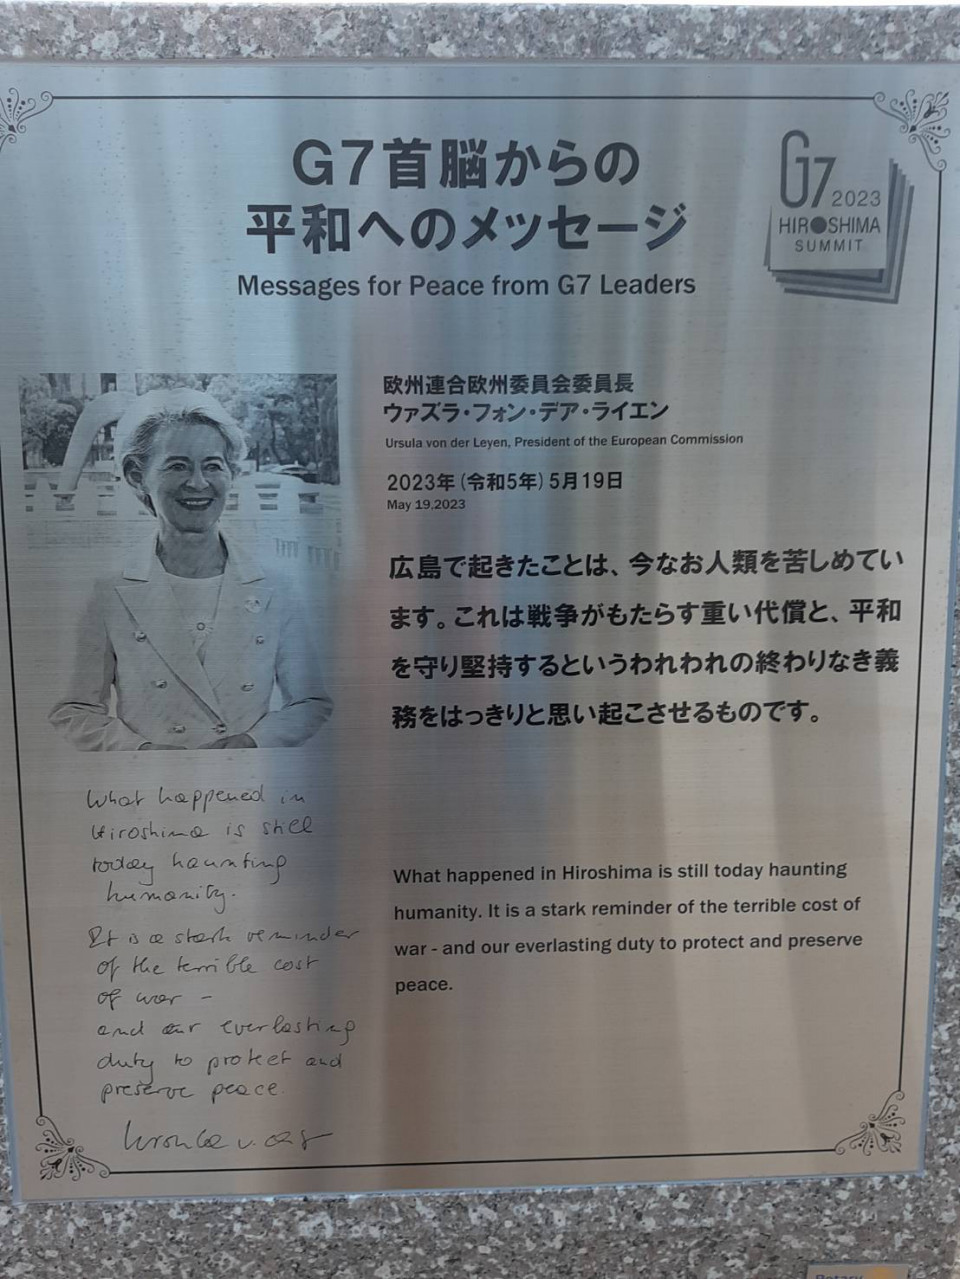 G7首脳からの
平和へのメッセージ
Messages for Peace from G7 Leaders
G7 2023
HIROSHIMA
SUMMIT
欧州連合欧州委員会委員長
ウァズラ・フォン・デア・ライエン
Ursula von der Leyen, President of the European Commission
2023年(令和5年)5月19日
May 19,2023
広島で起きたことは、今なお人類を苦しめてい
ます。これは戦争がもたらす重い代償と、平和
を守り堅持するというわれわれの終わりなき義
務をはっきりと思い起こさせるものです。
What happened in
Hiroshima is still
today haunting
humanity.
It is a stark reminder
of the terrible cost
of war -
and our everlasting
duty to protect and
preserve peace.
What happened in Hiroshima is still today haunting
humanity. It is a stark reminder of the terrible cost of
war - and our everlasting duty to protect and preserve
peace.
Rotary